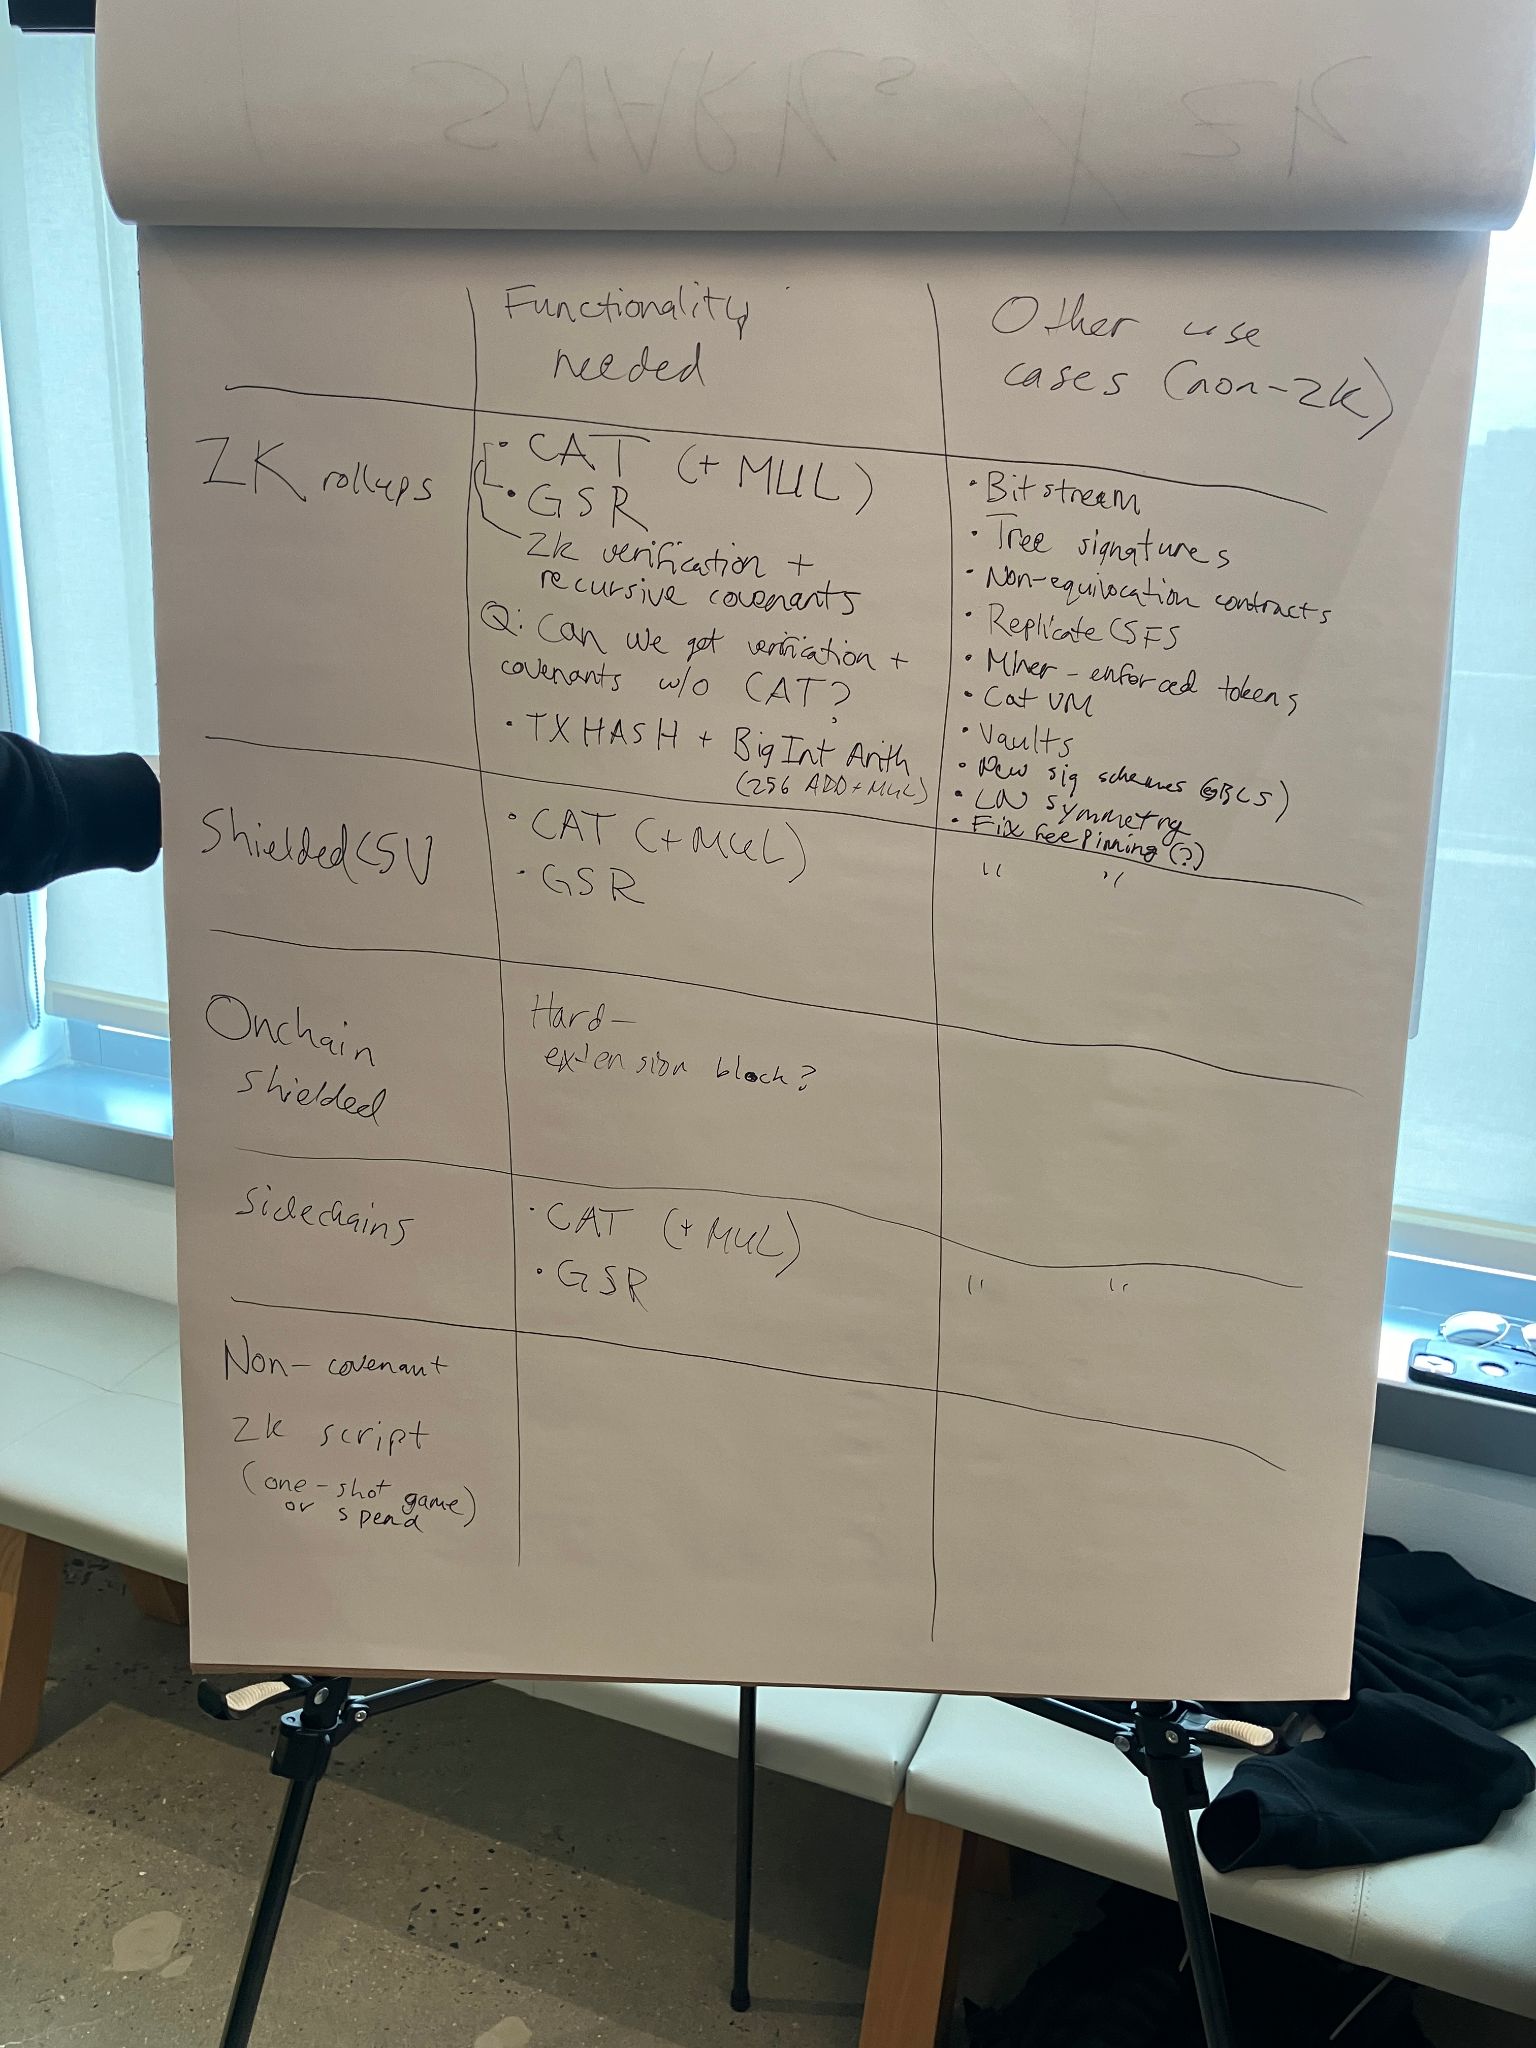 SNARKs / ZK
Functionality
needed
Other use
cases (non-ZK)
ZK rollups
• CAT (+ MUL)
• GSR
ZK verification +
recursive covenants
Q: Can we get verification +
covenants w/o CAT?
• TXHASH + Big Int Arith
(256 ADD + MUL)
• Bitstream
• Tree signatures
• Non-equivocation contracts
• Replicate CSFS
• Miner-enforced tokens
• Cat VM
• Vaults
• New sig schemes (eg BLS)
• LN symmetry
• Fix fee pinning (?)
Shielded CSV
• CAT (+ MUL)
• GSR
" "
Onchain
shielded
Hard-
extension block?
Sidechains
• CAT (+ MUL)
• GSR
" "
Non-covenant
ZK script
(one-shot game)
or spend